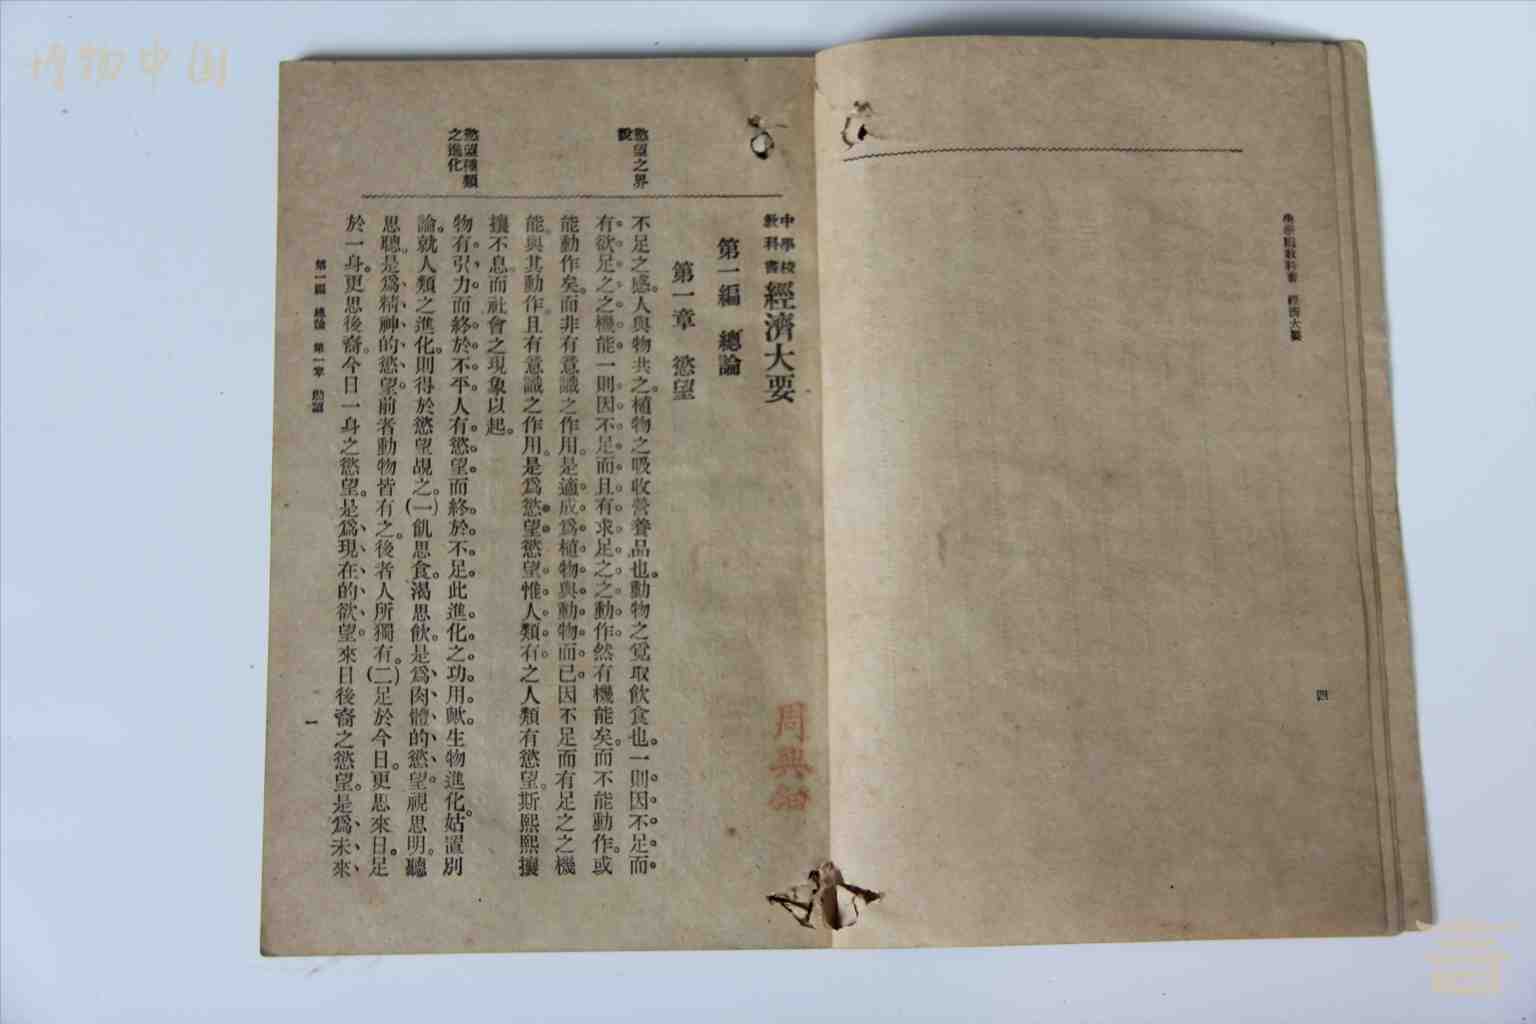 博物中国
中學校教科書 經濟大要
四
中學校
教科書
經濟大要
第一編 總論
第一章 慾望
慾望之界
說
不足之感。人與物共之。植物之吸收營養品也。動物之覓取飲食也。一則因不足而
有欲足之之機能一則因不足而且有求足之之動作然有機能矣。而不能動作。或
能動作矣。而非有意識之作用。是適成爲植物與動物而已因不足而有足之之機
能。與其動作。且有意識之作用。是爲慾望慾望惟人類有之人類有慾望。斯熙熙攘
攘不息。而社會之現象以起。
慾望種類
之進化
物有引力而終於不平。人有慾望。而終於不足。此進化之功用歟。生物進化。姑置別
論。就人類之進化。則得於慾望覘之。(一)飢思食。渴思飲。是爲肉體的慾望。視思明。聽
思聰。是爲精神的慾望前者動物皆有之。後者人所獨有。(二)足於今日。更思來日。足
於一身。更思後裔。今日一身之慾望。是爲現在的欲望。來日後裔之慾望。是爲未來
第一編 總論 第一章 慾望
一
周興